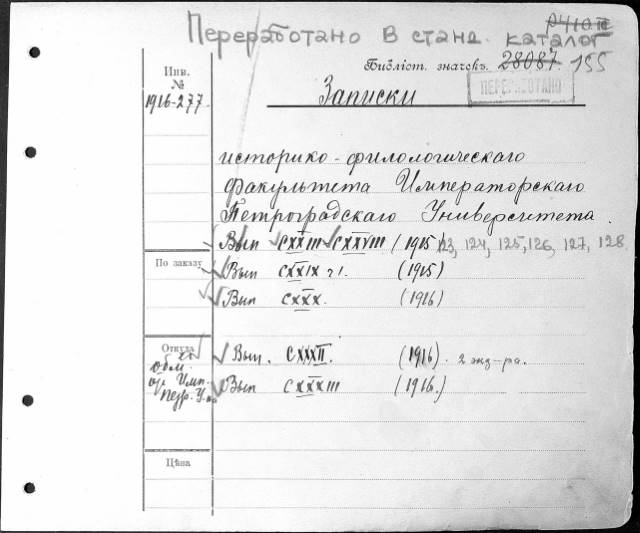 Переработано в станд. каталог
Библіот. значекъ. 28087 155
ПЕРЕРАБОТАНО
Инв.
№
1916-277.
Записки
историко-филологическаго
Факультета Императорскаго
Петроградскаго Университета.
Вып CXXIII CXXVIII (1915) 123, 124, 125, 126, 127, 128
По заказу
Вып CXXIX ч 1. (1915)
Вып CXXX. (1916)
Откуда
Вып. CXXXII. (1916). 2 экз-ра.
Вып CXXXIII (1916.)
Обм.
Имп.
Петр. У-
Цѣна